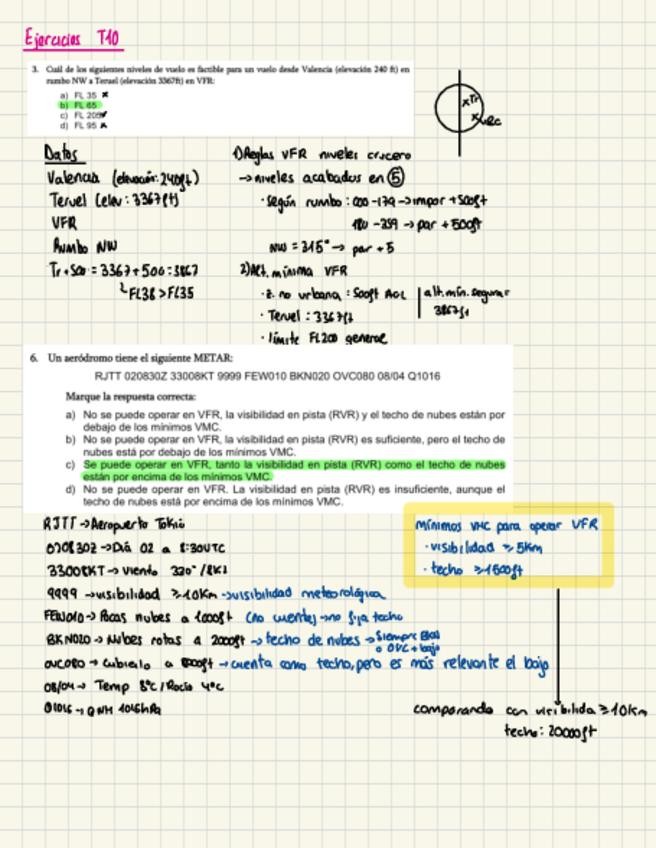 Ejercicios T10
3. Cuál de los siguientes niveles de vuelo es factible para un vuelo desde Valencia (elevación 240 ft) en
rumbo NW a Teruel (elevación 3367ft) en VFR:
a) FL 35 x
b) FL 65
c) FL 205
d) FL 95 x
xTr
xVLC
Datos
Valencia (elevación: 240ft)
Teruel (elev: 3367ft)
VFR
Rumbo NW
Tr+500 = 3367+500 = 3867
↳FL38 > FL35
1) Reglas VFR niveles crucero
→ niveles acabados en 5
· según rumbo: 000-179 → impar +500ft
180-359 → par +500ft
NW = 315° → par +5
2) Alt. mínima VFR
· z. no urbana: 500ft AGL
· Teruel: 3367ft
· límite FL200 general
alt. mín. segura =
3867ft
6. Un aeródromo tiene el siguiente METAR:
RJTT 020830Z 33008KT 9999 FEW010 BKN020 OVC080 08/04 Q1016
Marque la respuesta correcta:
a) No se puede operar en VFR, la visibilidad en pista (RVR) y el techo de nubes están por
debajo de los mínimos VMC.
b) No se puede operar en VFR, la visibilidad en pista (RVR) es suficiente, pero el techo de
nubes está por debajo de los mínimos VMC.
c) Se puede operar en VFR, tanto la visibilidad en pista (RVR) como el techo de nubes
están por encima de los mínimos VMC.
d) No se puede operar en VFR. La visibilidad en pista (RVR) es insuficiente, aunque el
techo de nubes está por encima de los mínimos VMC.
RJTT → Aeropuerto Tokio
020830Z → Día 02 a 8:30UTC
33008KT → Viento 330° / 8Kt
9999 → visibilidad ≥ 10Km → visibilidad meteorológica
FEW010 → Pocas nubes a 1000ft (no cuentes → no fija techo
BKN020 → Nubes rotas a 2000ft → techo de nubes → Siempre BKN
o OVC + bajo
OVC080 → Cubierto a 8000ft → cuenta como techo, pero es más relevante el bajo
08/04 → Temp 8°C / Rocío 4°C
Q1016 → QNH 1016hPa
mínimos VMC para operar VFR
· visibilidad ≥ 5Km
· techo ≥ 1500ft
comparando con visibilida ≥ 10Km
techo: 20000ft